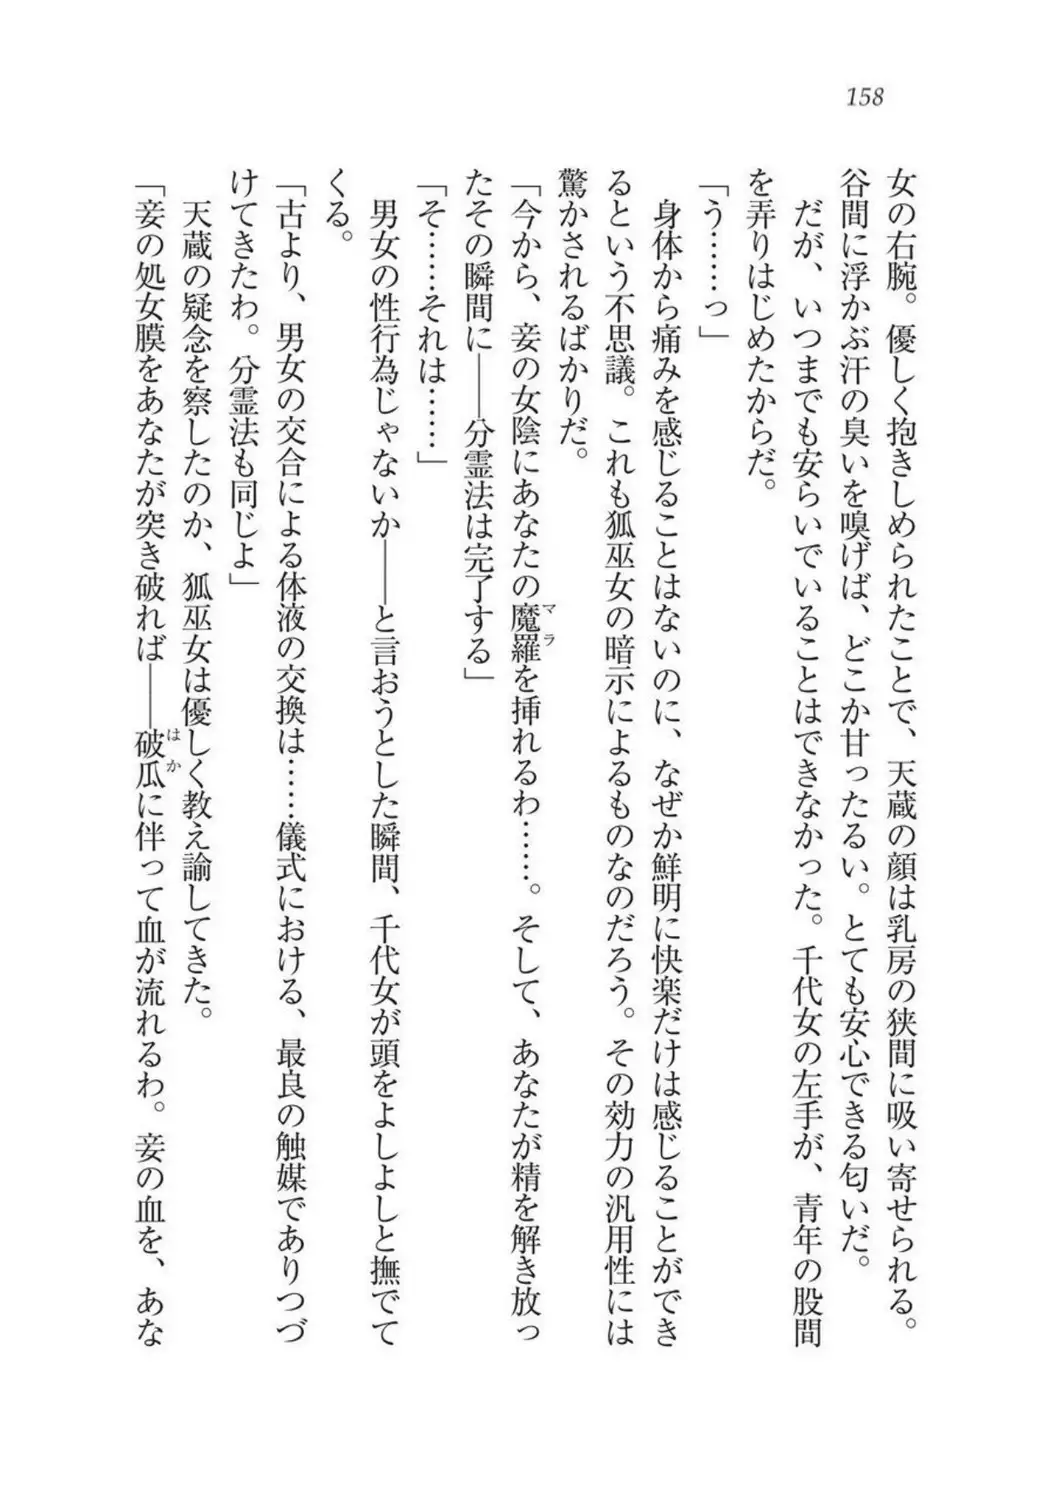 158
女の右腕。優しく抱きしめられたことで、天蔵の顔は乳房の狭間に吸い寄せられる。
谷間に浮かぶ汗の臭いを嗅げば、どこか甘ったるい。とても安心できる匂いだ。
だが、いつまでも安らいでいることはできなかった。千代女の左手が、青年の股間
を弄りはじめたからだ。
「う……っ」
身体から痛みを感じることはないのに、なぜか鮮明に快楽だけは感じることができ
るという不思議。これも狐巫女の暗示によるものなのだろう。その効力の汎用性には
驚かされるばかりだ。
「今から、妾の女陰にあなたの魔羅を挿れるわ……。そして、あなたが精を解き放っ
マラ
たその瞬間に――分霊法は完了する」
「そ……それは……」
男女の性行為じゃないか――と言おうとした瞬間、千代女が頭をよしよしと撫でて
くる。
「古より、男女の交合による体液の交換は……儀式における、最良の触媒でありつづ
けてきたわ。分霊法も同じよ」
天蔵の疑念を察したのか、狐巫女は優しく教え諭してきた。
「妾の処女膜をあなたが突き破れば――破瓜に伴って血が流れるわ。妾の血を、あな
はか